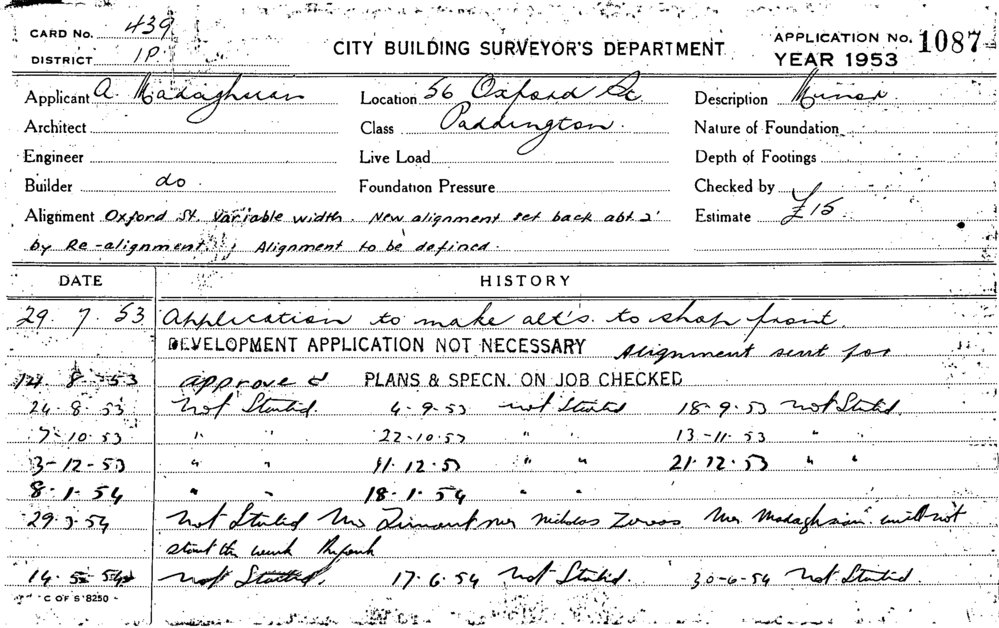 CARD No. 439
DISTRICT 1P.
CITY BUILDING SURVEYOR'S DEPARTMENT
APPLICATION No. 1087
YEAR 1953
Applicant A. Madaghsian Location 56 Oxford St. Description Minor
Architect Class Paddington. Nature of Foundation
Engineer Live Load Depth of Footings
Builder do Foundation Pressure Checked by
Alignment Oxford St. Variable width. New alignment set back abt 2' Estimate £15
by Re-alignment. Alignment to be defined.
DATE HISTORY
29. 7. 53 Application to make alt's. to shop front.
DEVELOPMENT APPLICATION NOT NECESSARY Alignment sent for
14. 8. 53 approved PLANS & SPECN. ON JOB CHECKED
24. 8. 53 Not Started. 4. 9. 53 Not Started 18. 9. 53 Not Started.
7. 10. 53 " " 22. 10. 53 " " 13-11. 53 " "
3-12-53 " " 11. 12. 53 " " 21. 12. 53 " "
8. 1. 54 " " 18. 1. 54 " "
29. 3. 54 Not Started Nicholas Mr Madaghsian will not
start the work
14. 5. 54 Not Started. 17. 6. 54 Not Started. 30-6-54 Not Started.
C OF S 8250